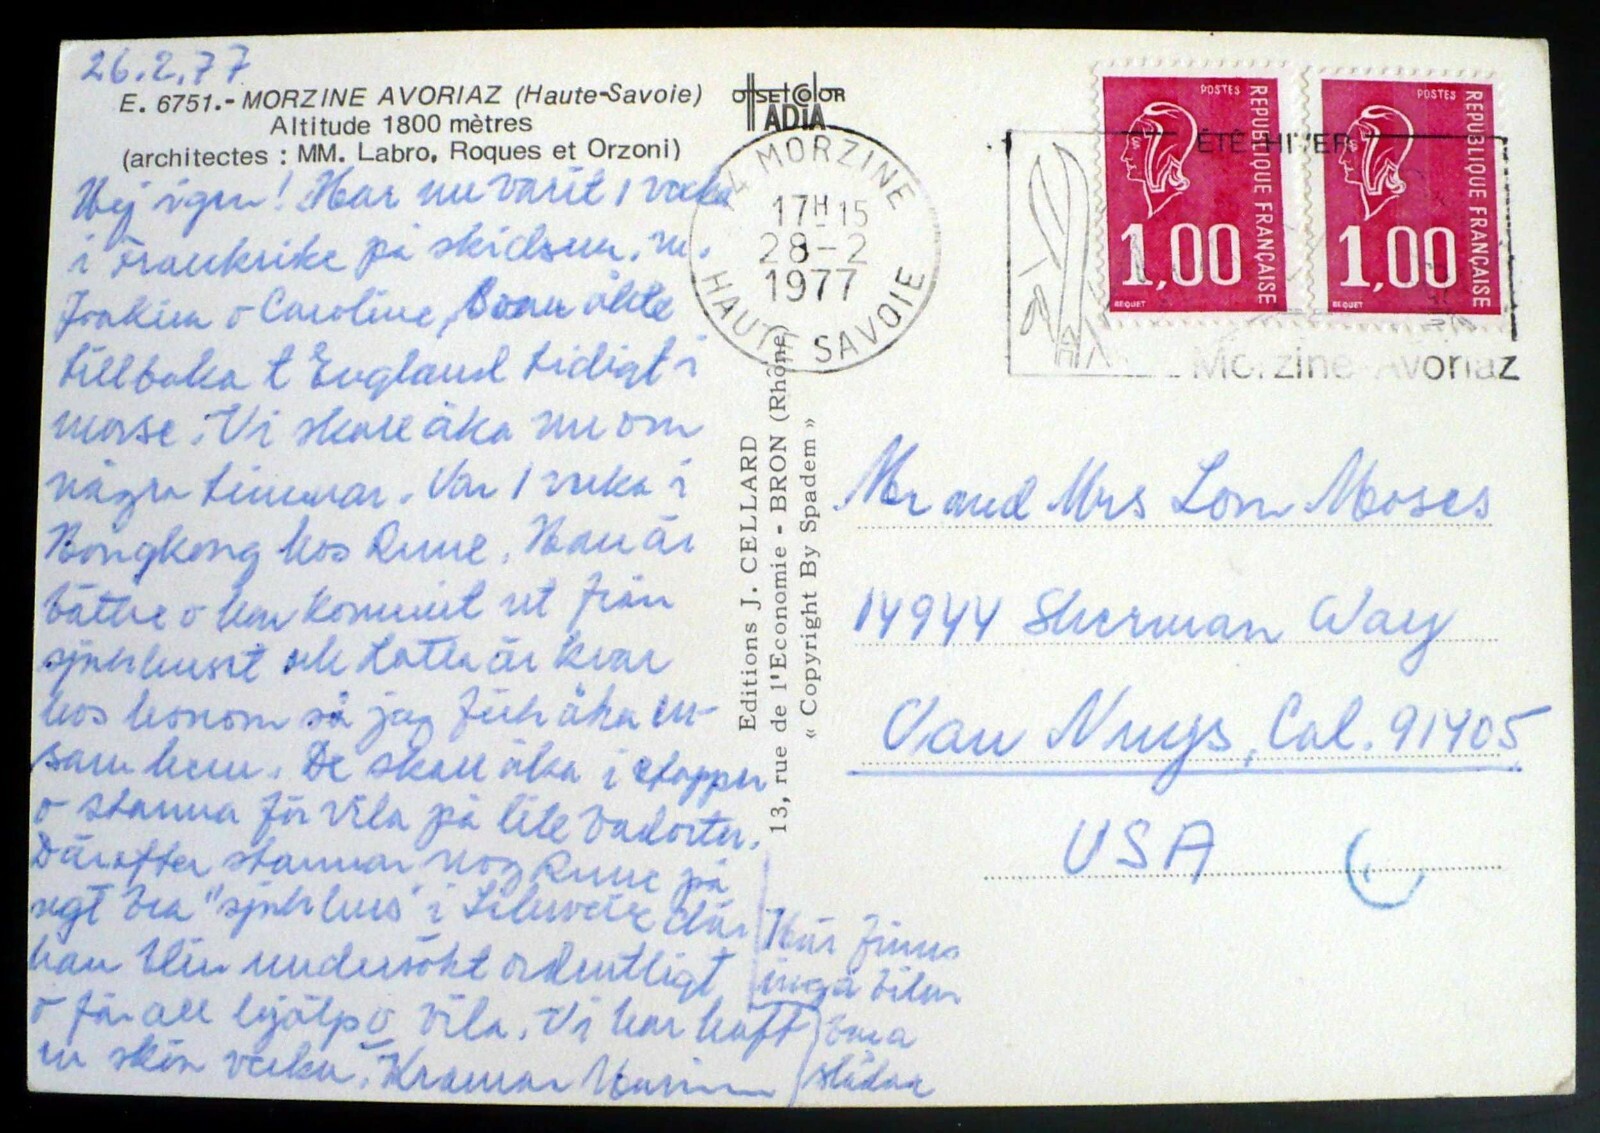 26.2.77
E. 6751.- MORZINE AVORIAZ (Haute-Savoie)
Altitude 1800 mètres
(architectes : MM. Labro, Roques et Orzoni)
offset color
ADIA
Hej igen! Har nu varit 1 vecka
i Frankrike på skidsem. m.
Joakim o Caroline, åkte
tillbaka t England tidigt i
morse. Vi skall åka nu om
några timmar. Var 1 vecka i
Hongkong hos Rune. Han är
bättre o har kommit ut från
sjukhuset och Lotta är kvar
hos honom så jag fick åka en-
sam hem. De skall åka i etapper
o stanna för vila på lite badorter.
Därefter stannar nog Rune på
ngt bra "sjukhus" i där
han blir undersökt ordentligt
o får all hjälp o vila. Vi har haft
en skön vecka. Kramar
Här finns
inga bilar
bara
slädar
74 MORZINE
17H15
28-2
1977
HAUTE SAVOIE
ÉTÉ HIVER
Morzine-Avoriaz
POSTES
REPUBLIQUE FRANÇAISE
1,00
BEQUET
POSTES
REPUBLIQUE FRANÇAISE
1,00
BEQUET
Editions J. CELLARD
13, rue de l'Economie - BRON (Rhône)
« Copyright By Spadem »
Mr and Mrs Lom Moses
14944 Sherman Way
Van Nuys, Cal. 91405
USA